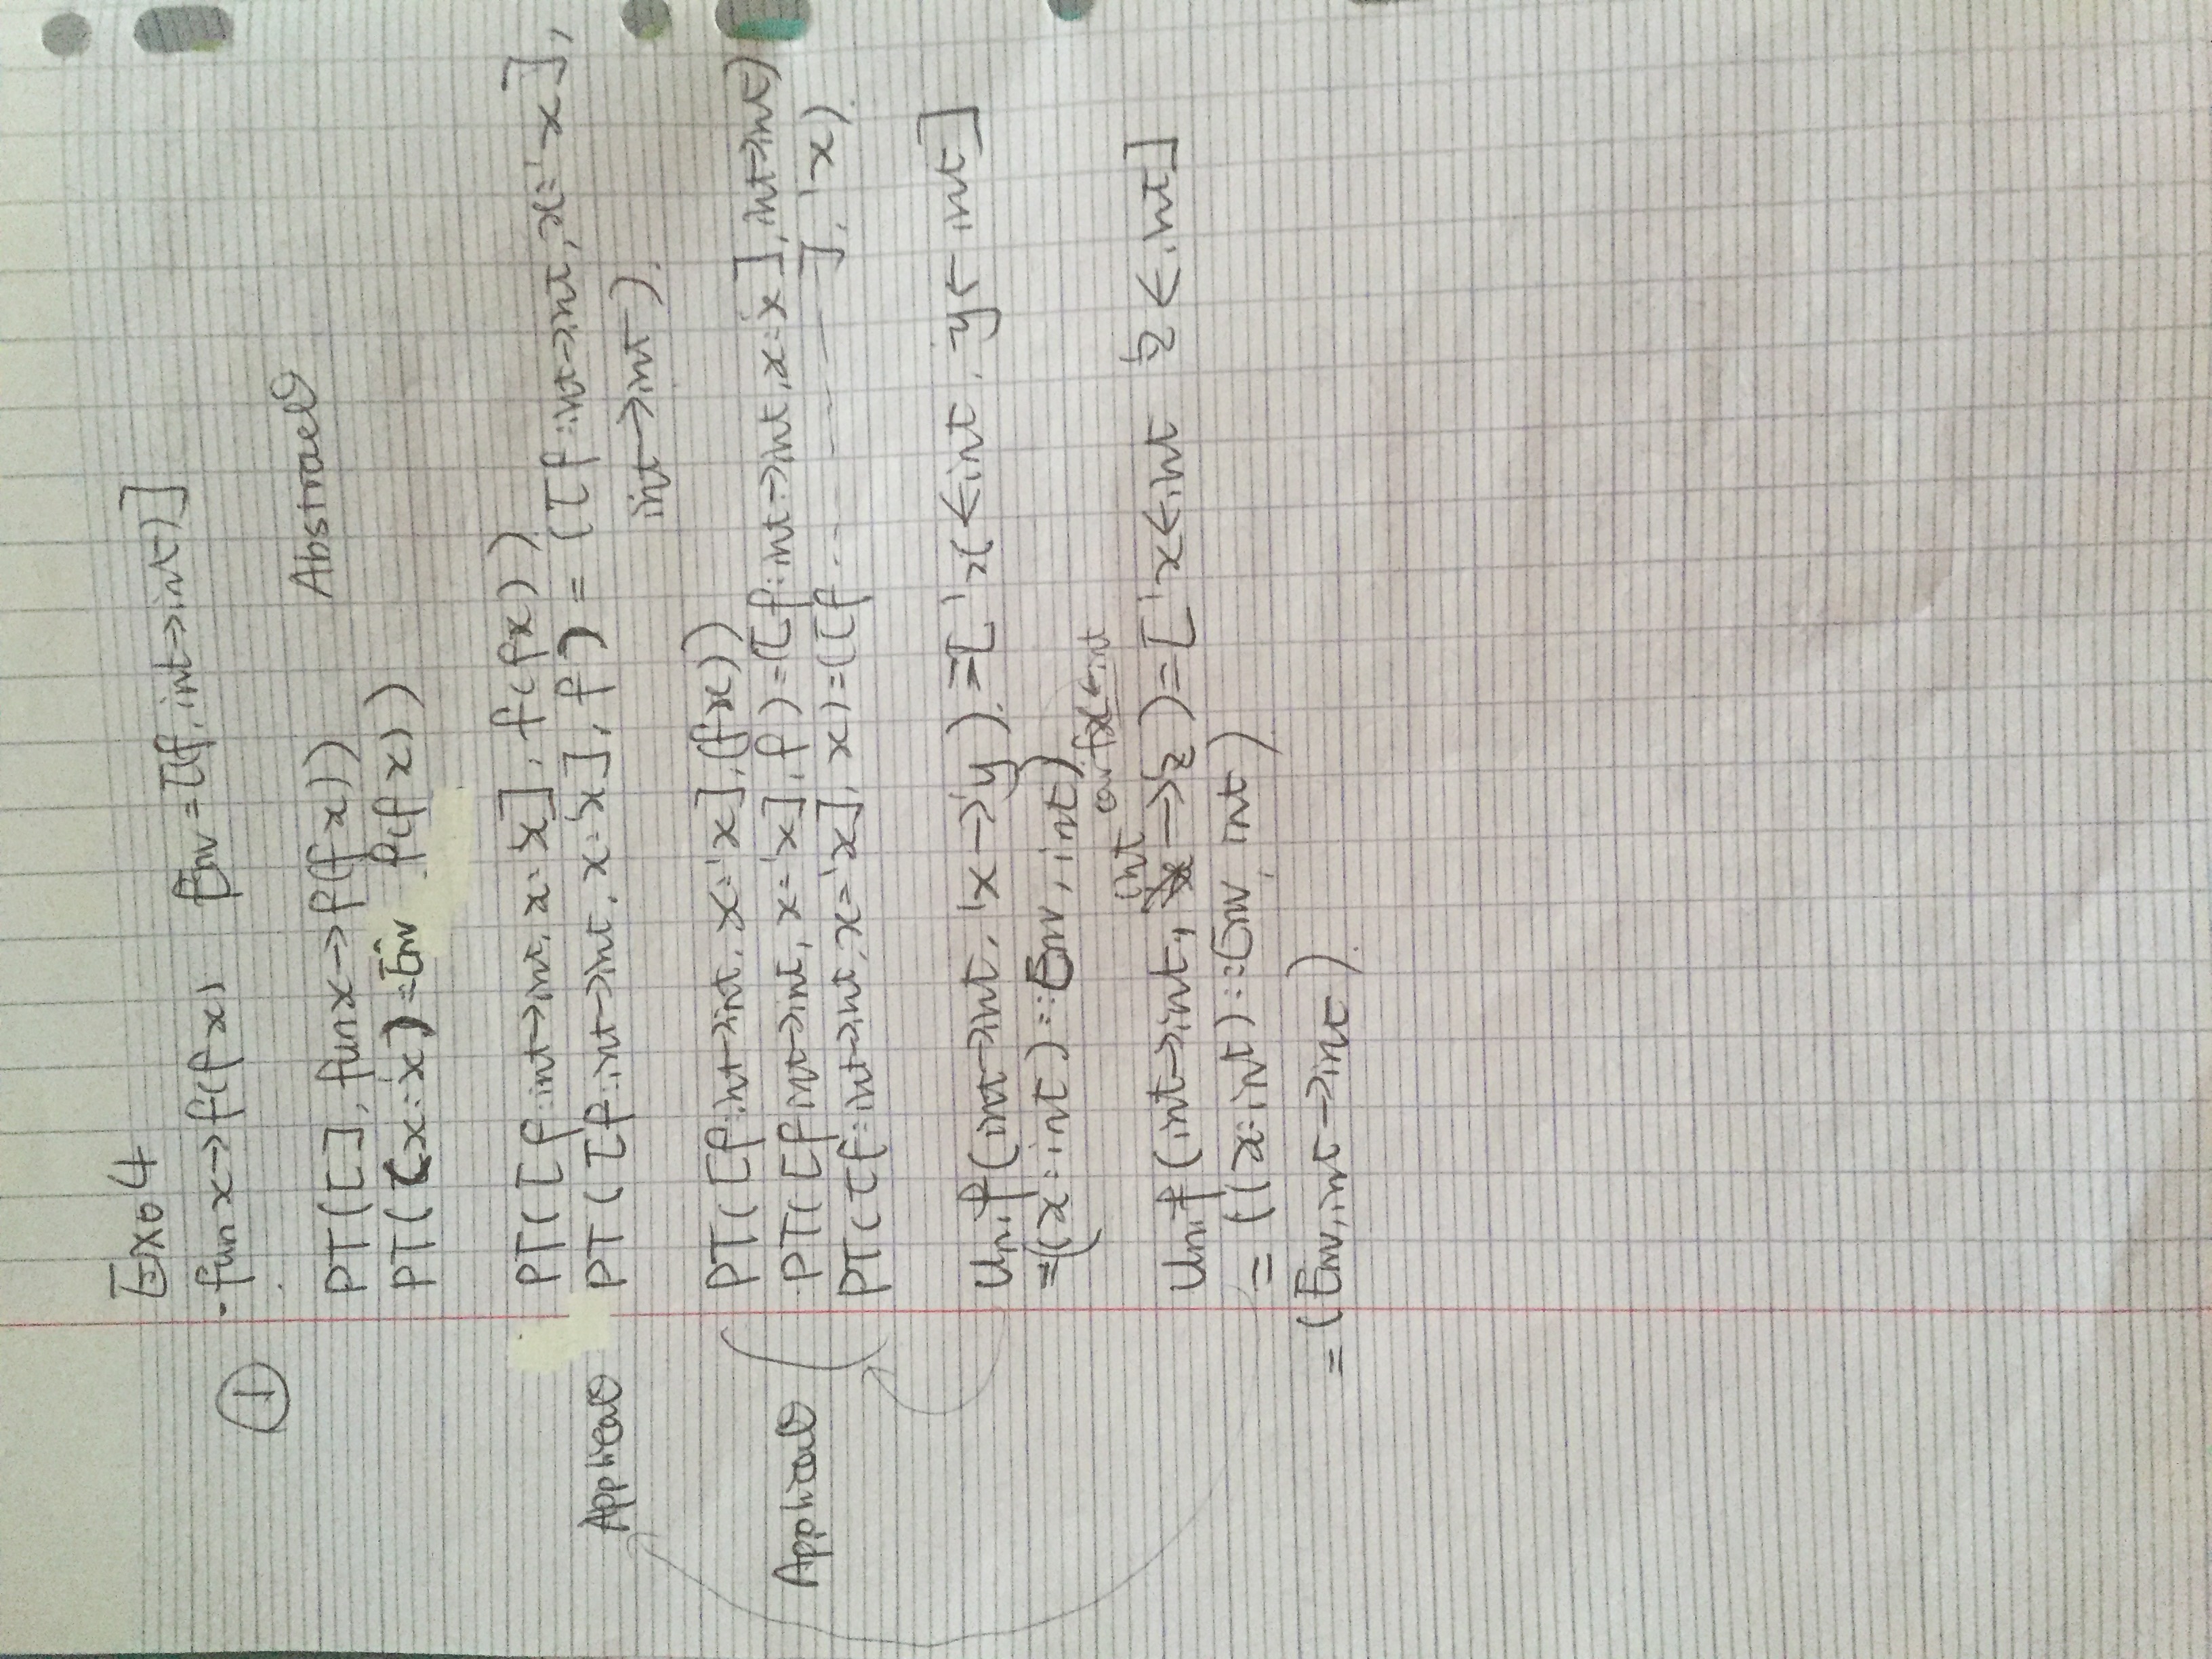 Exo 4
① - fun x → f(f x) Env = [(f, int → int)]
PT([], fun x → f(f x)) Abstract⁰
PT((x: 'x)::Env f(f x))
PT([f: int → int, x: 'x], f(f x))
Applicat⁰ PT([f: int → int, x: 'x], f) = ([f: int → int, x: 'x],
int → int).
PT([f: int → int, x: 'x], (f x))
Applicat⁰ PT([f: int → int, x: 'x], f) = ([f: int → int, x: 'x], int → int)
PT([f: int → int, x: 'x], x) = ([f - - - - - ], 'x).
Unif(int → int, 'x → 'y). = ['x ← int, 'y ← int]
= ((x: int)::Env, int)
int car 'x ← int
Unif(int → int, → 'z) = ['x ← int 'z ← int]
= ((x: int)::Env, int).
= (Env, int → int).